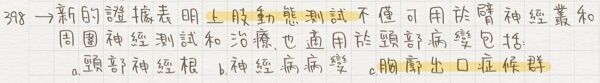 398 →新的證據表明上肢動態測試不僅可用於臂神經叢和
周圍神經測試和治療,也適用於頸部病變包括:
a.頸部神經根 b.神經病病變 c.胸廓出口症候群